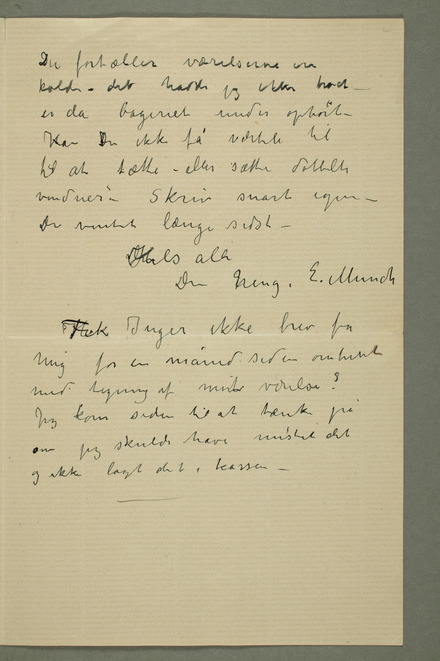 Du fortæller værelserne ere
kolde – det havde jeg ikke troet –
er da bageriet under ophørt –
Kan Du ikke få værten til
til at tætte – eller sætte dobbelte
vinduer i – Skriv snart igjen –
Du ventet længe sidst –
Hils alle
Din heng. E. Munch
Fick Inger ikke brev fra
mig for en måned siden omtrent
med tegning af mit værelse?
Jeg kom siden til at tænke på
om jeg skulde have mistet det
og ikke lagt det i kassen –